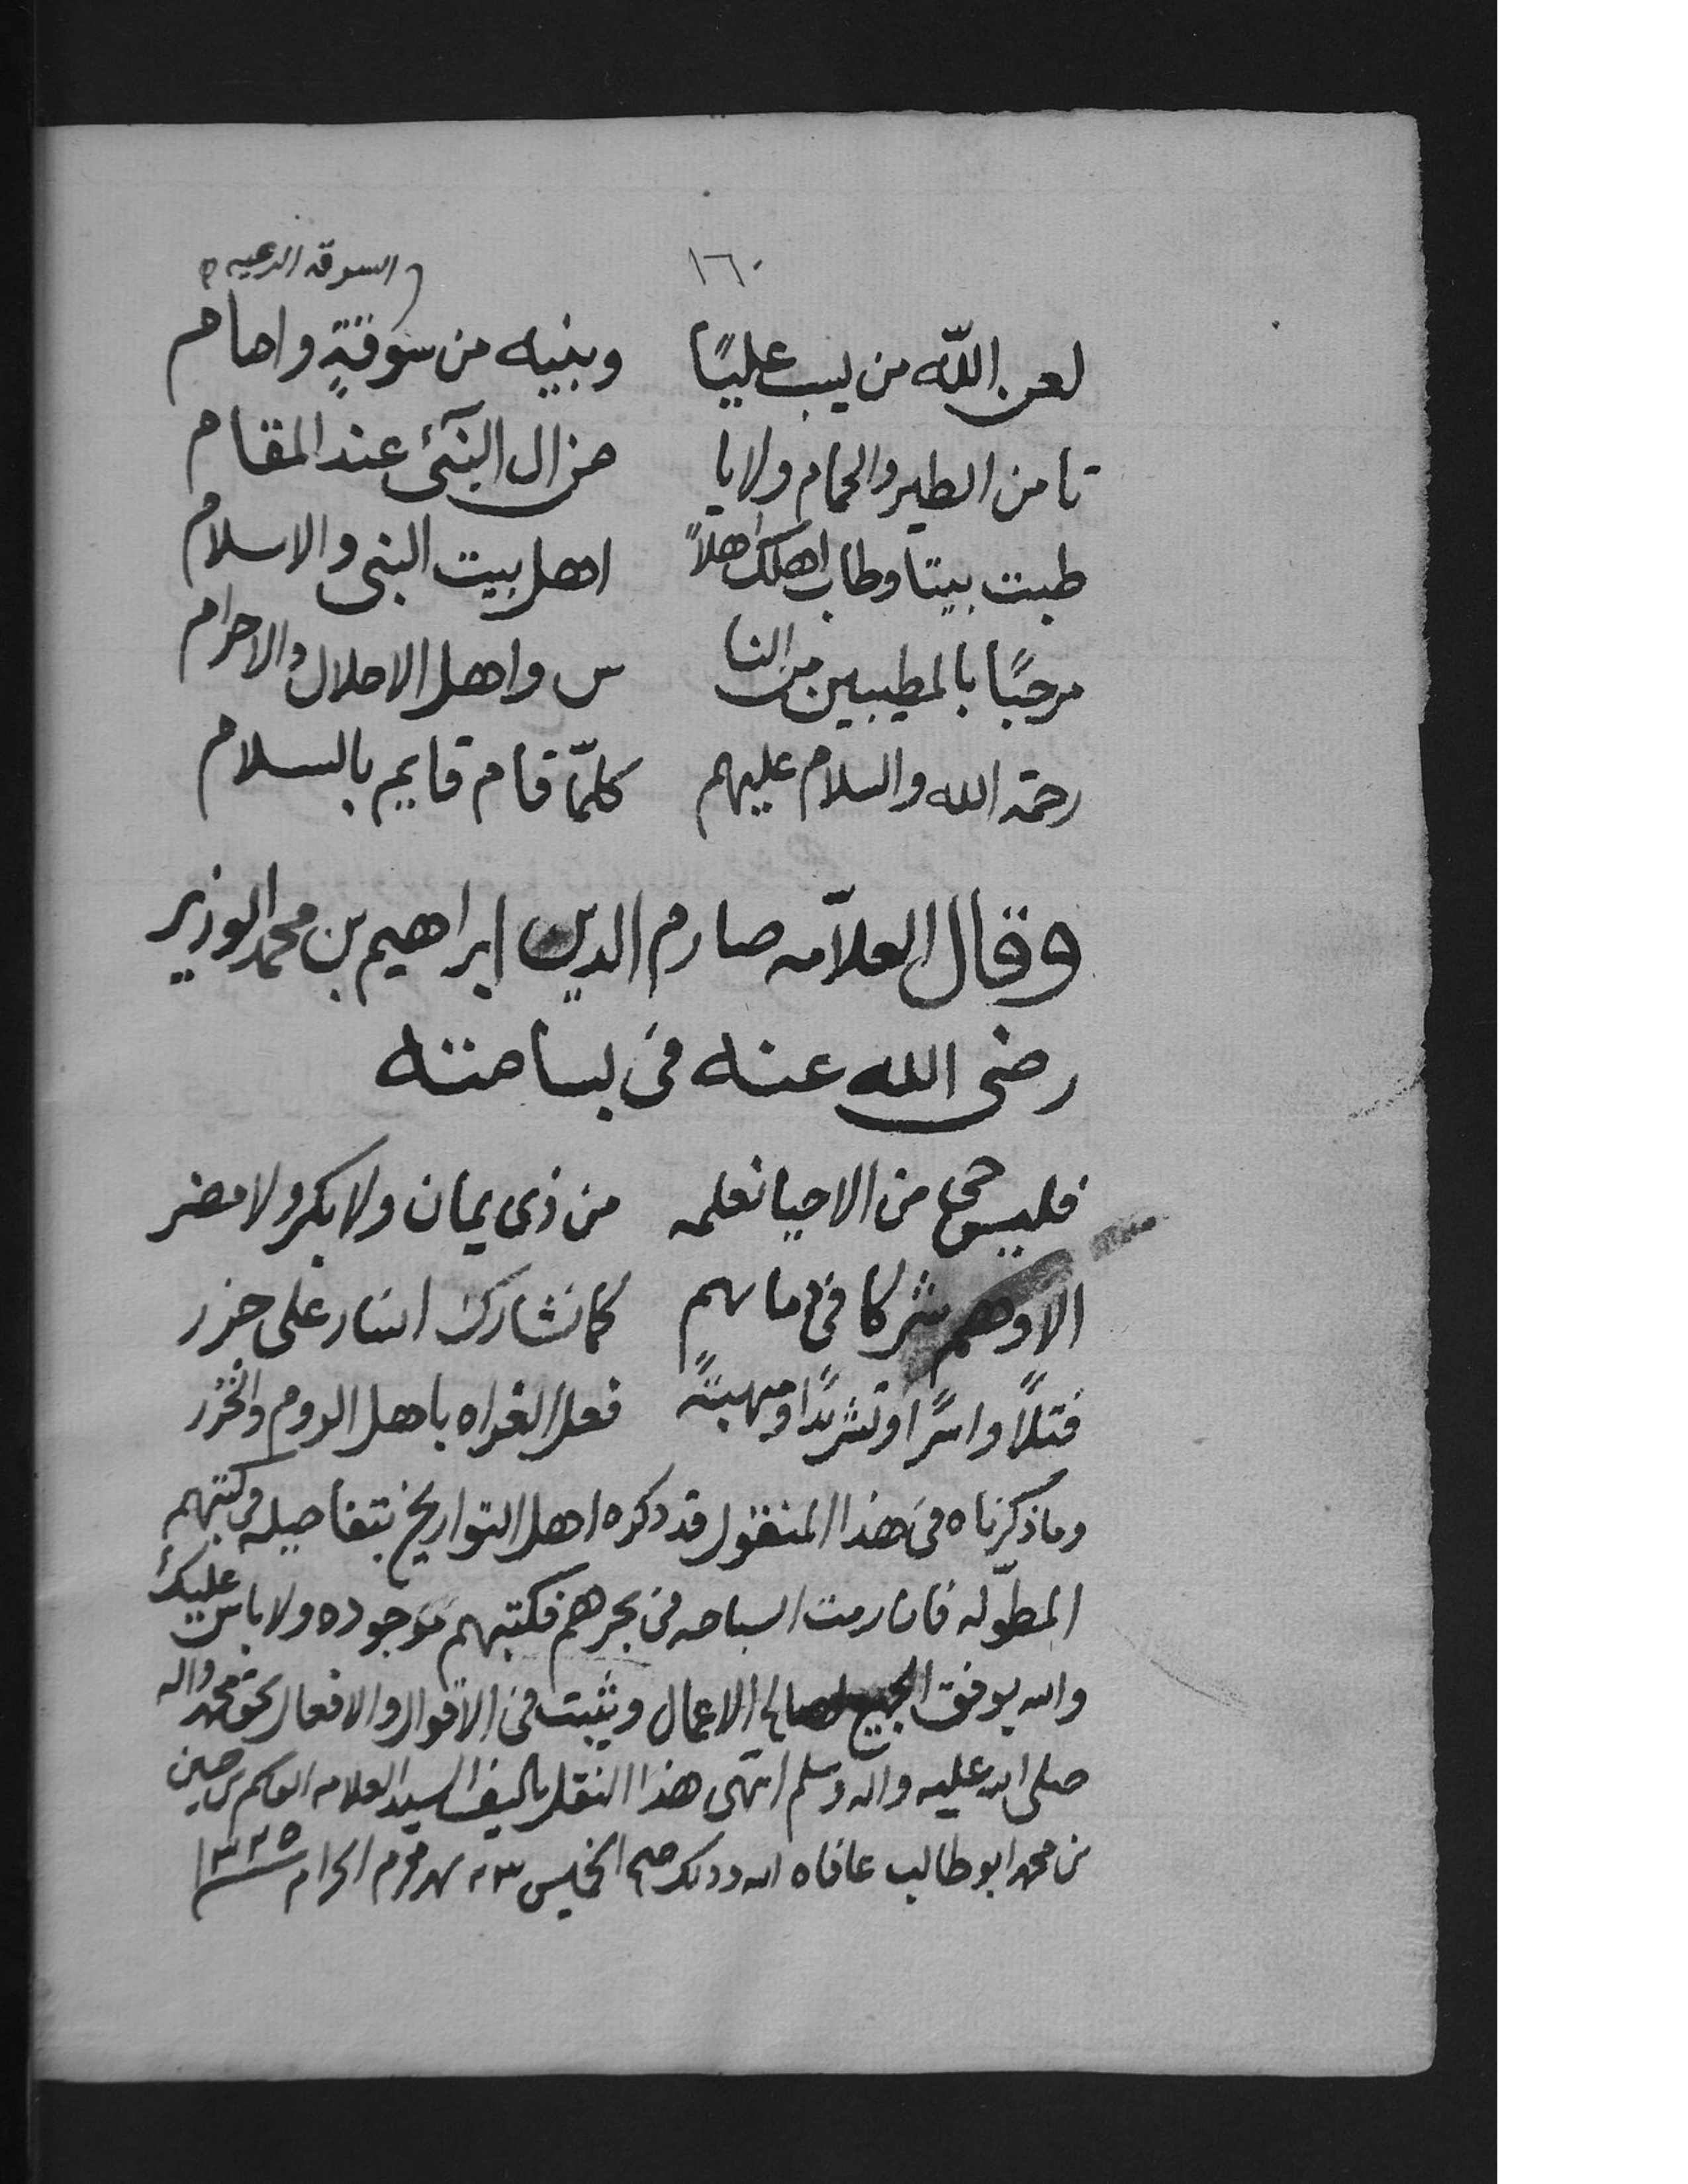 ١٦٠
السوقه الرعيه
لعن الله من يسب عليًا وبنيه من سوقةٍ وامام
تامن الطير والحمام ولا يا من ال النبئ عند المقام
طبت بيتا وطاب اهلك اهلاً اهل بيت النبي والاسلام
مرحبًا بالمطيبين من النا س واهل الاحلال والاحرام
رحمة الله والسلام عليهم كلمّا قام قايم بالسلام
وقال العلاّمه صارم الدين ابراهيم بن محمد الوزير
رضي الله عنه في بسامته
فليس حي من الاحيا نعلمه من ذي يمان ولا بكر ولا مضر
الا وهم شركا في دمايهم كما تشارك ايسار على جزر
قتلاً واسرًا وتشريدًا ومنهبتًه فعل الغزاه باهل الروم والخزر
وما ذكرناه في هذا المنقول قد ذكره اهل التواريخ بتفاصيله في كتبهم
المطوله فان رمت السباحه في بحرهم فكتبهم موجوده ولا باس عليك
والله يوفق الجميع لصالح الاعمال ويثبت في الاقوال والافعال بحق محمد واله
صلى الله عليه واله وسلم انتهى هذا النقل تاليف السيد العلامه
بن محمد ابو طالب عافاه الله وذلك صبح الخميس شهر محرم الحرام ١٣٣٥